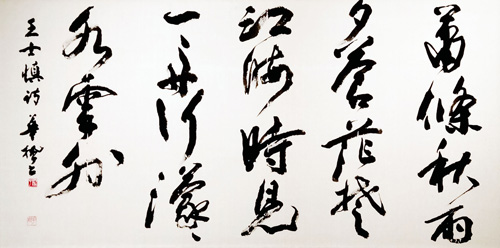 蕭條秋雨
夕蒼茫楚
江晦時見
一舟行濛
水雲外
王士慎詩